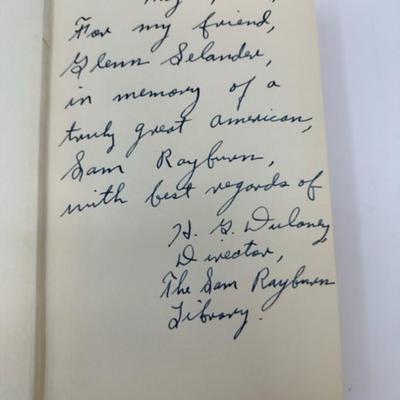 May
For my friend,
Glenn Selander,
in memory of a
truly great american,
Sam Rayburn,
with best regards of
H. G. Dulaney
Director,
The Sam Rayburn
Library.